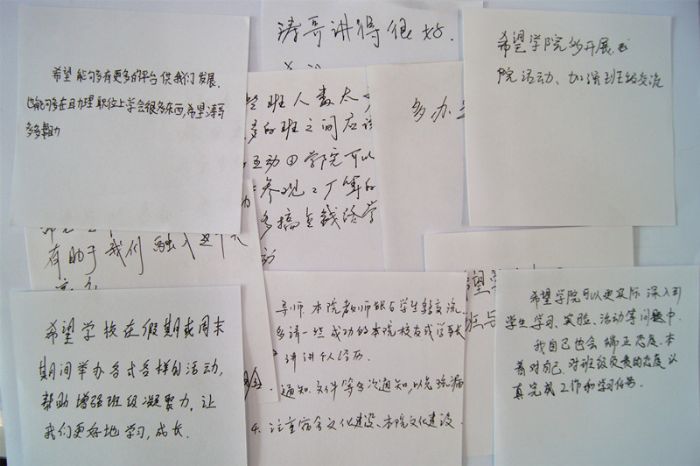 涛哥讲得很好.
希望能够有更多的平台供我们发展.
也能够多在且办理职位上学会很多东西,希望涛哥
多多帮助
希望学院多开展
院活动、加深班级交流
班人数太
多的班之间应该
互动④学院可以
参观工厂算的
多搞实践活学
动
多办
有助于我们融入这个
希望学校在假期或周末
期间举办各式各样的活动,
帮助增强班级凝聚力,让
我们更好地学习,成长.
导师.本院老师能与学生多交流
多请一些成功的本院校友或学长
讲讲个人经历.
通知.文件等多次通知,以免疏漏
4.注重宿舍文化建设、本院文化建设.
希望学
班与
希望学院可以更实际深入到
学生学习、实验、活动等问题中.
我自己也会端正态度.本
着对自己.对班级负责的态度认
真完成工作和学习任务.